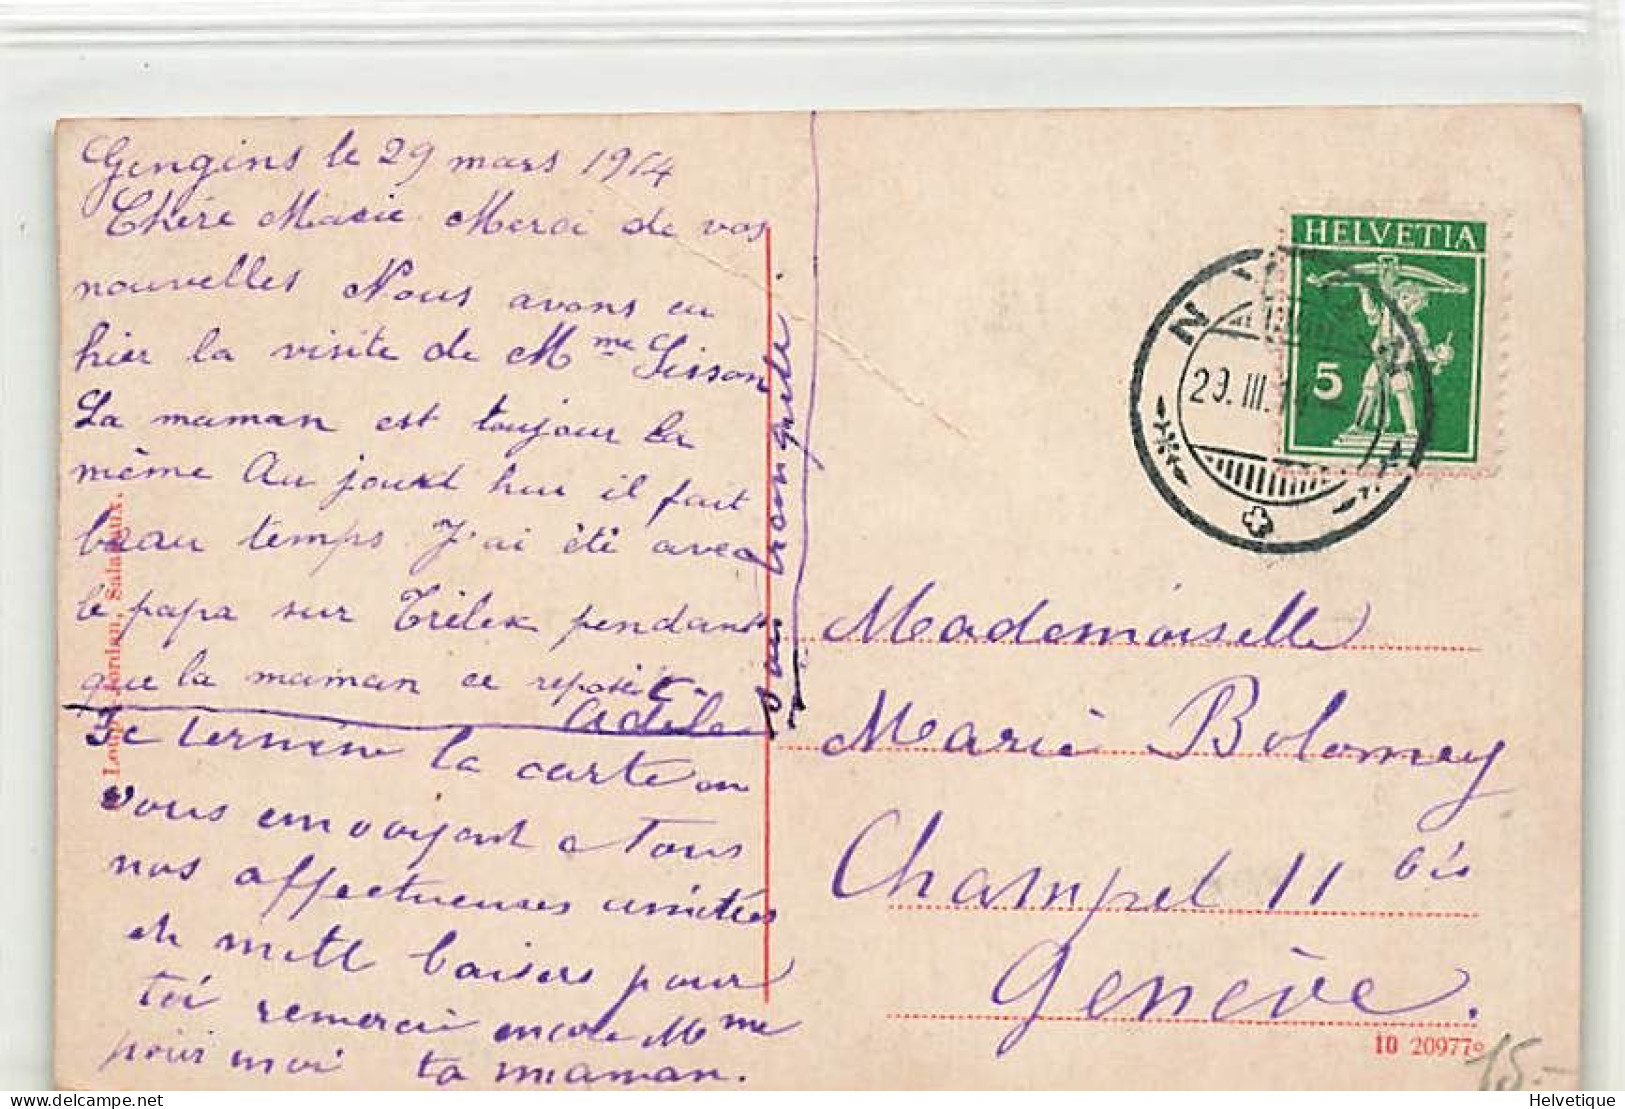 Gingins le 29 mars 1914
Chère Marie Merci de vos
nouvelles Nous avons eu
hier la visite de Mme Sisson
La maman est toujour la
même Au jourd hui il fait
beau temps J'ai été avec
le papa sur Trélex pendant
que la maman ce reposait.
Adèle
Je termine la carte en
vous envoyant a tous
nos affectueuses amitiées
eh mill baisers pour
toi remerci encore Mme
pour moi ta maman.
tranquille.
HELVETIA
5
NYON
29. III. 14
Mademoiselle
Marie Bolomey
Champel 11 bis
Genève.
10 20977
15.-
Helvetique
delcampe.net